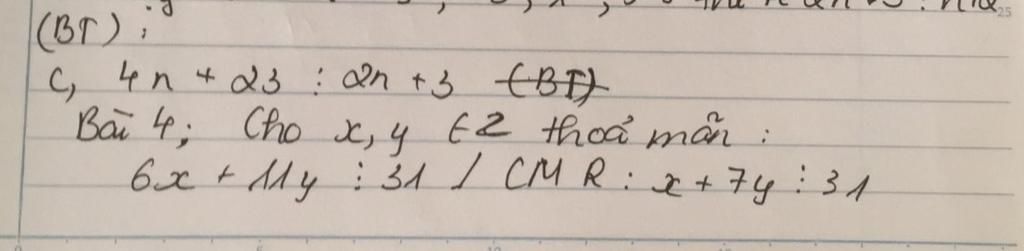 (BT) :
c, 4n + 23 ⋮ 2n + 3 (BT)
Bài 4; Cho x, y ∈ Z thoả mãn :
6x + 11y ⋮ 31 / CMR : x + 7y ⋮ 31
25